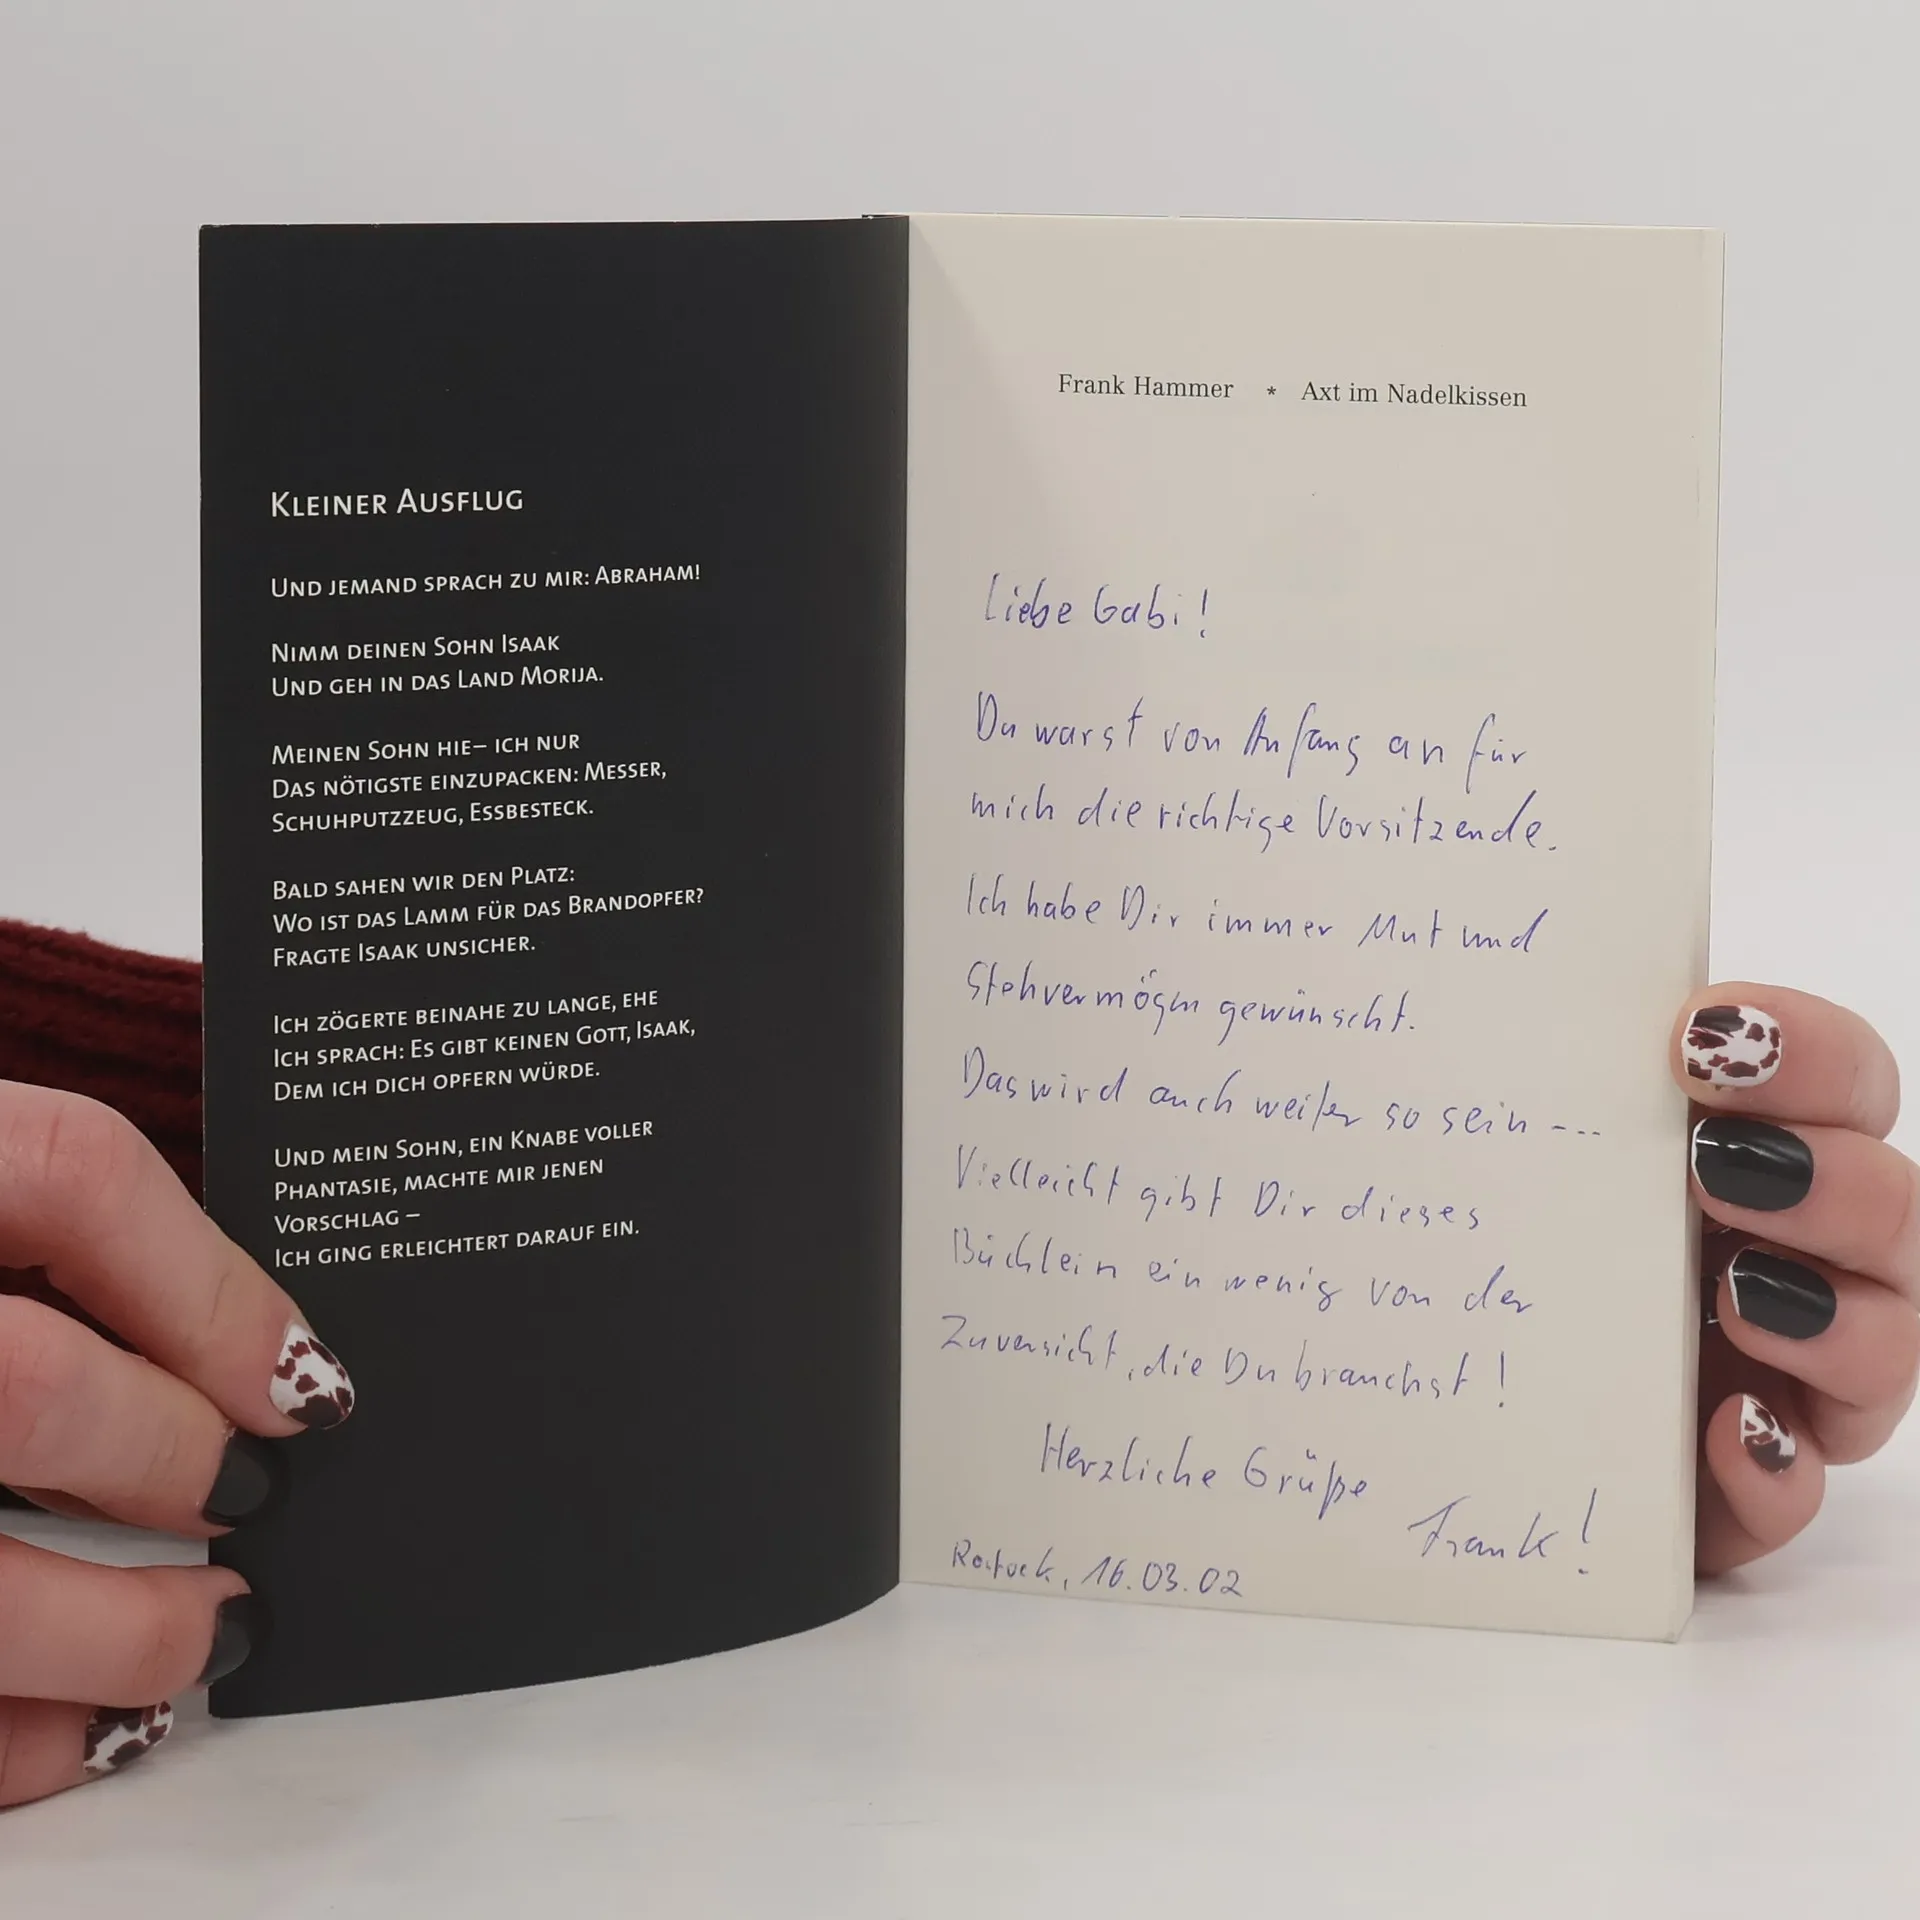 KLEINER AUSFLUG
UND JEMAND SPRACH ZU MIR: ABRAHAM!
NIMM DEINEN SOHN ISAAK
UND GEH IN DAS LAND MORIJA.
MEINEN SOHN HIE– ICH NUR
DAS NÖTIGSTE EINZUPACKEN: MESSER,
SCHUHPUTZZEUG, ESSBESTECK.
BALD SAHEN WIR DEN PLATZ:
WO IST DAS LAMM FÜR DAS BRANDOPFER?
FRAGTE ISAAK UNSICHER.
ICH ZÖGERTE BEINAHE ZU LANGE, EHE
ICH SPRACH: ES GIBT KEINEN GOTT, ISAAK,
DEM ICH DICH OPFERN WÜRDE.
UND MEIN SOHN, EIN KNABE VOLLER
PHANTASIE, MACHTE MIR JENEN
VORSCHLAG –
ICH GING ERLEICHTERT DARAUF EIN.
Frank Hammer * Axt im Nadelkissen
Liebe Gabi!
Du warst von Anfang an für
mich die richtige Vorsitzende.
Ich habe Dir immer Mut und
Stehvermögen gewünscht.
Das wird auch weiter so sein ---
Vielleicht gibt Dir dieses
Büchlein ein wenig von der
Zuversicht, die Du brauchst!
Herzliche Grüße
Frank!
Rostock, 16.03.02